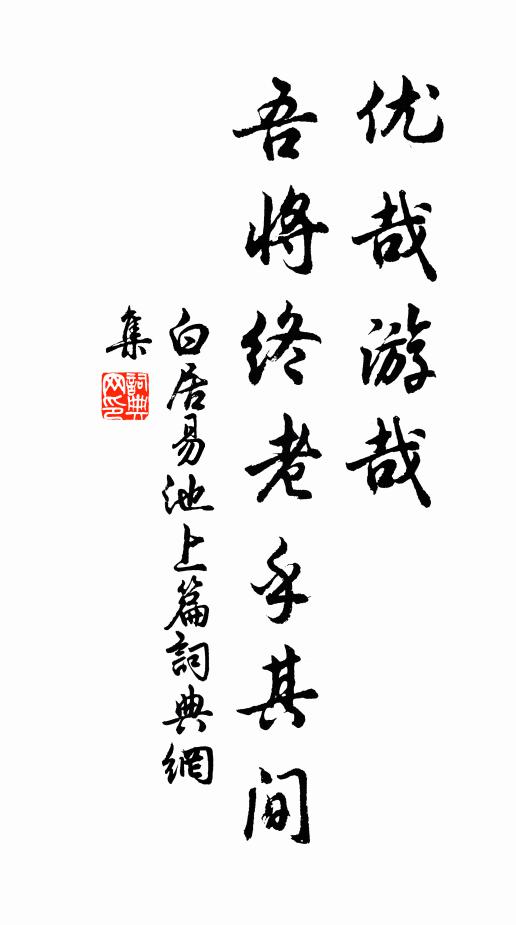 优哉游哉
吾将终老乎其间
白居易池上篇詞典網
集
詞典
网印